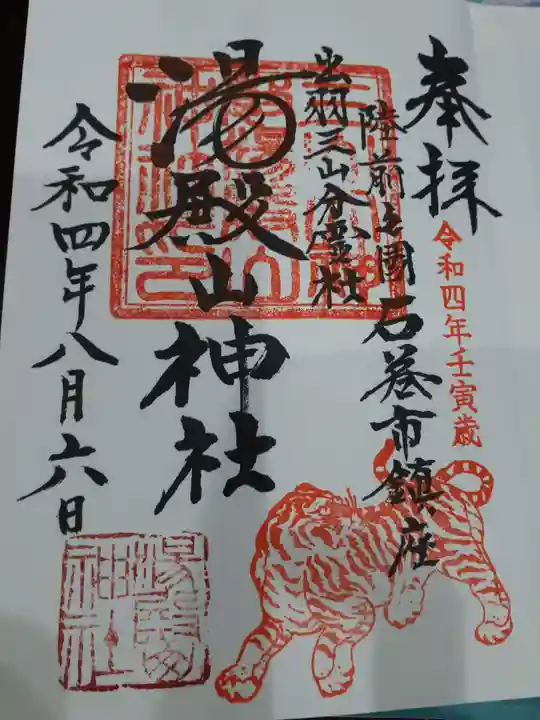 奉拝
令和四年壬寅歳
陸前之國石巻市鎮座
出羽三山分霊社
湯殿山神社
令和四年八月六日